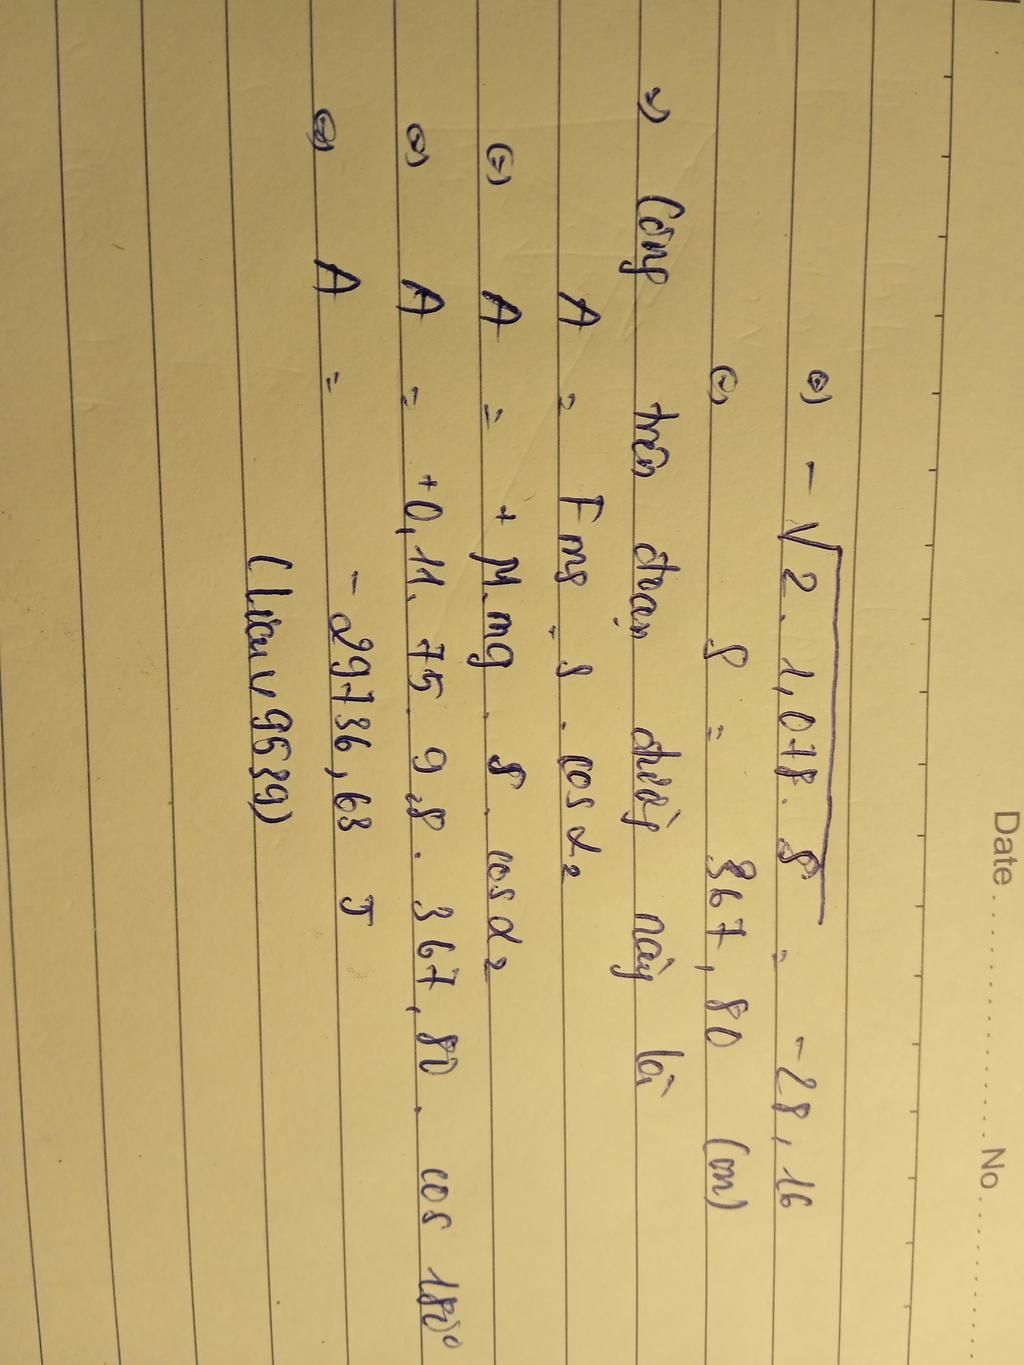 Date.......... No......
⇔ - √2. 1,078. S = - 28,16
⇔ S = 367,80 (m)
Công trên đoạn đường này là
A = Fms . s . cos α₂
⇔ A = + μ.mg . S . cos α₂
⇔ A = +0,11. 75. 9,8 . 367,80 . cos 180°
⇔ A = - 29736,63 J